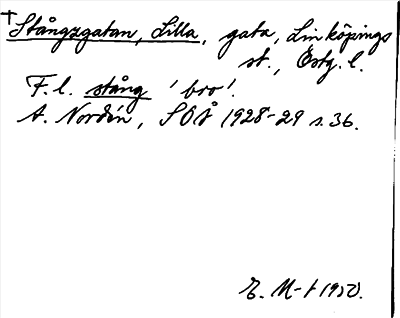 †Stångzgatan, Lilla, gata, Linköpings
st., Östg. l.
F. l. stång 'bro'.
A. Nordén, SOÅ 1928-29 s. 36.
E. M-t 1950.